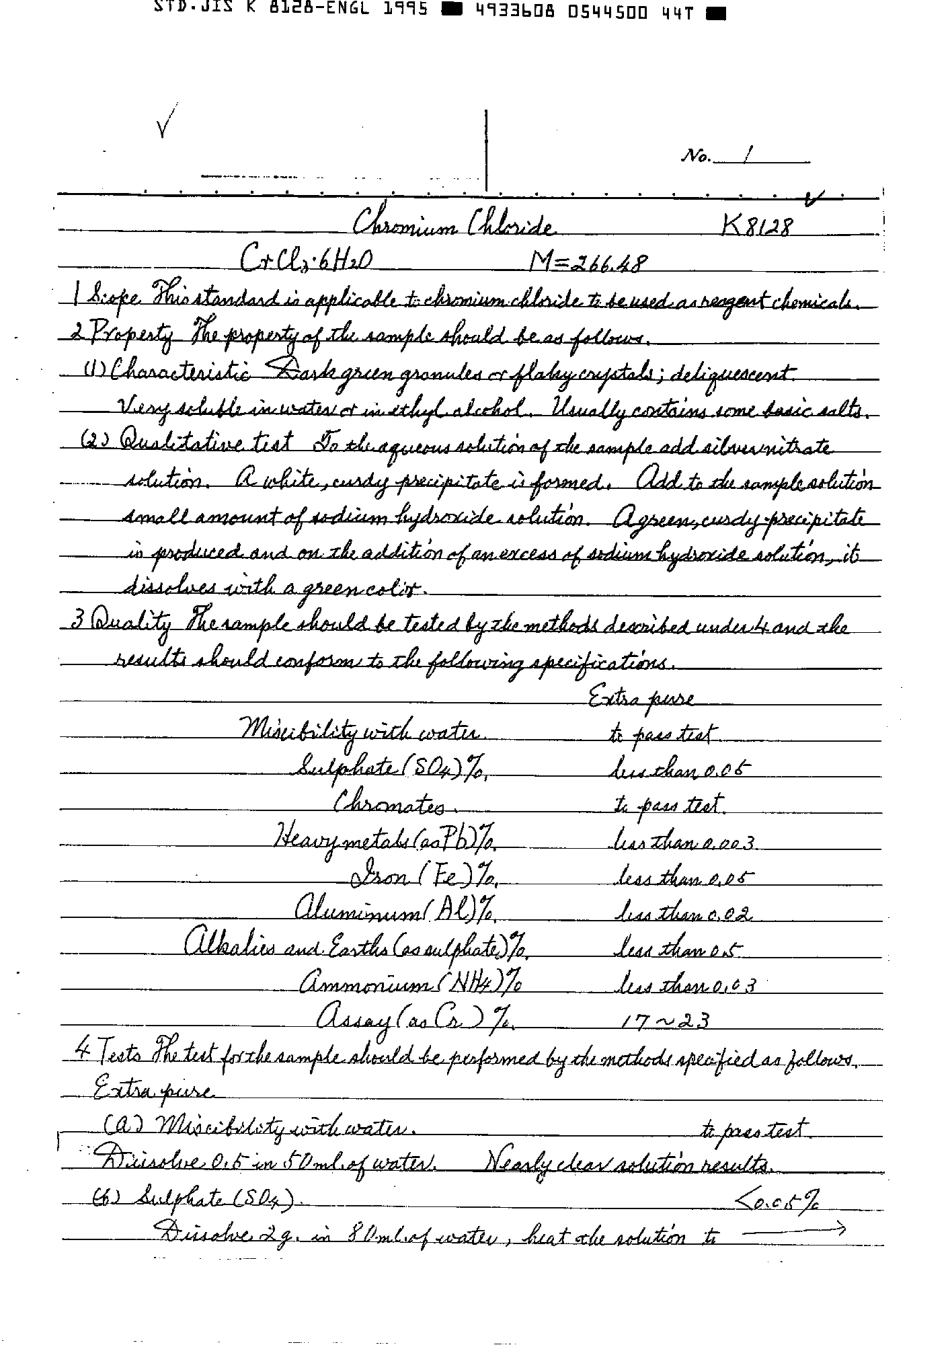 STD.JIS K 8128-ENGL 1995 ■ 4933608 0544500 44T ■
√
No. 1
Chromium Chloride K8128
CrCl3·6H2O M=266.48
1 Scope This standard is applicable to chromium chloride to be used as reagent chemicals.
2 Property The property of the sample should be as follows.
(1) Characteristic Dark green granules or flaky crystals; deliquescent.
Very soluble in water or in ethyl alcohol. Usually contains some basic salts.
(2) Qualitative test To the aqueous solution of the sample add silver nitrate
solution. A white, curdy precipitate is formed. Add to the sample solution
small amount of sodium hydroxide solution. A green, curdy precipitate
is produced and on the addition of an excess of sodium hydroxide solution, it
dissolves with a green color.
3 Quality The sample should be tested by the methods described under 4 and the
results should conform to the following specifications.
Extra pure
Miscibility with water. to pass test
Sulphate (SO4) %. less than 0.05
Chromates. to pass test.
Heavy metals (as Pb) %. less than 0.003
Iron (Fe) %. less than 0.05
Aluminum (Al) %. less than 0.02
Alkalies and Earths (as sulphate) %. less than 0.5
Ammonium (NH4) % less than 0.03
Assay (as Cr) %. 17~23
4 Tests The test for the sample should be performed by the methods specified as follows.
Extra pure
(a) Miscibility with water. to pass test
Dissolve 0.5 in 50 ml. of water. Nearly clear solution results.
(b) Sulphate (SO4). <0.05%
Dissolve 2 g. in 80 ml. of water, heat the solution to →